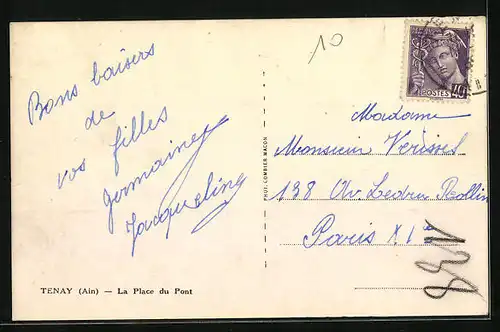 10
Bons baisers
de
vos filles
Germaine
Jacqueline
TENAY (Ain) — La Place du Pont
PHOT. COMBIER MACON
POSTES 40
Madame
Monsieur Verissel
138 Av. Ledru Rollin
Paris XIe